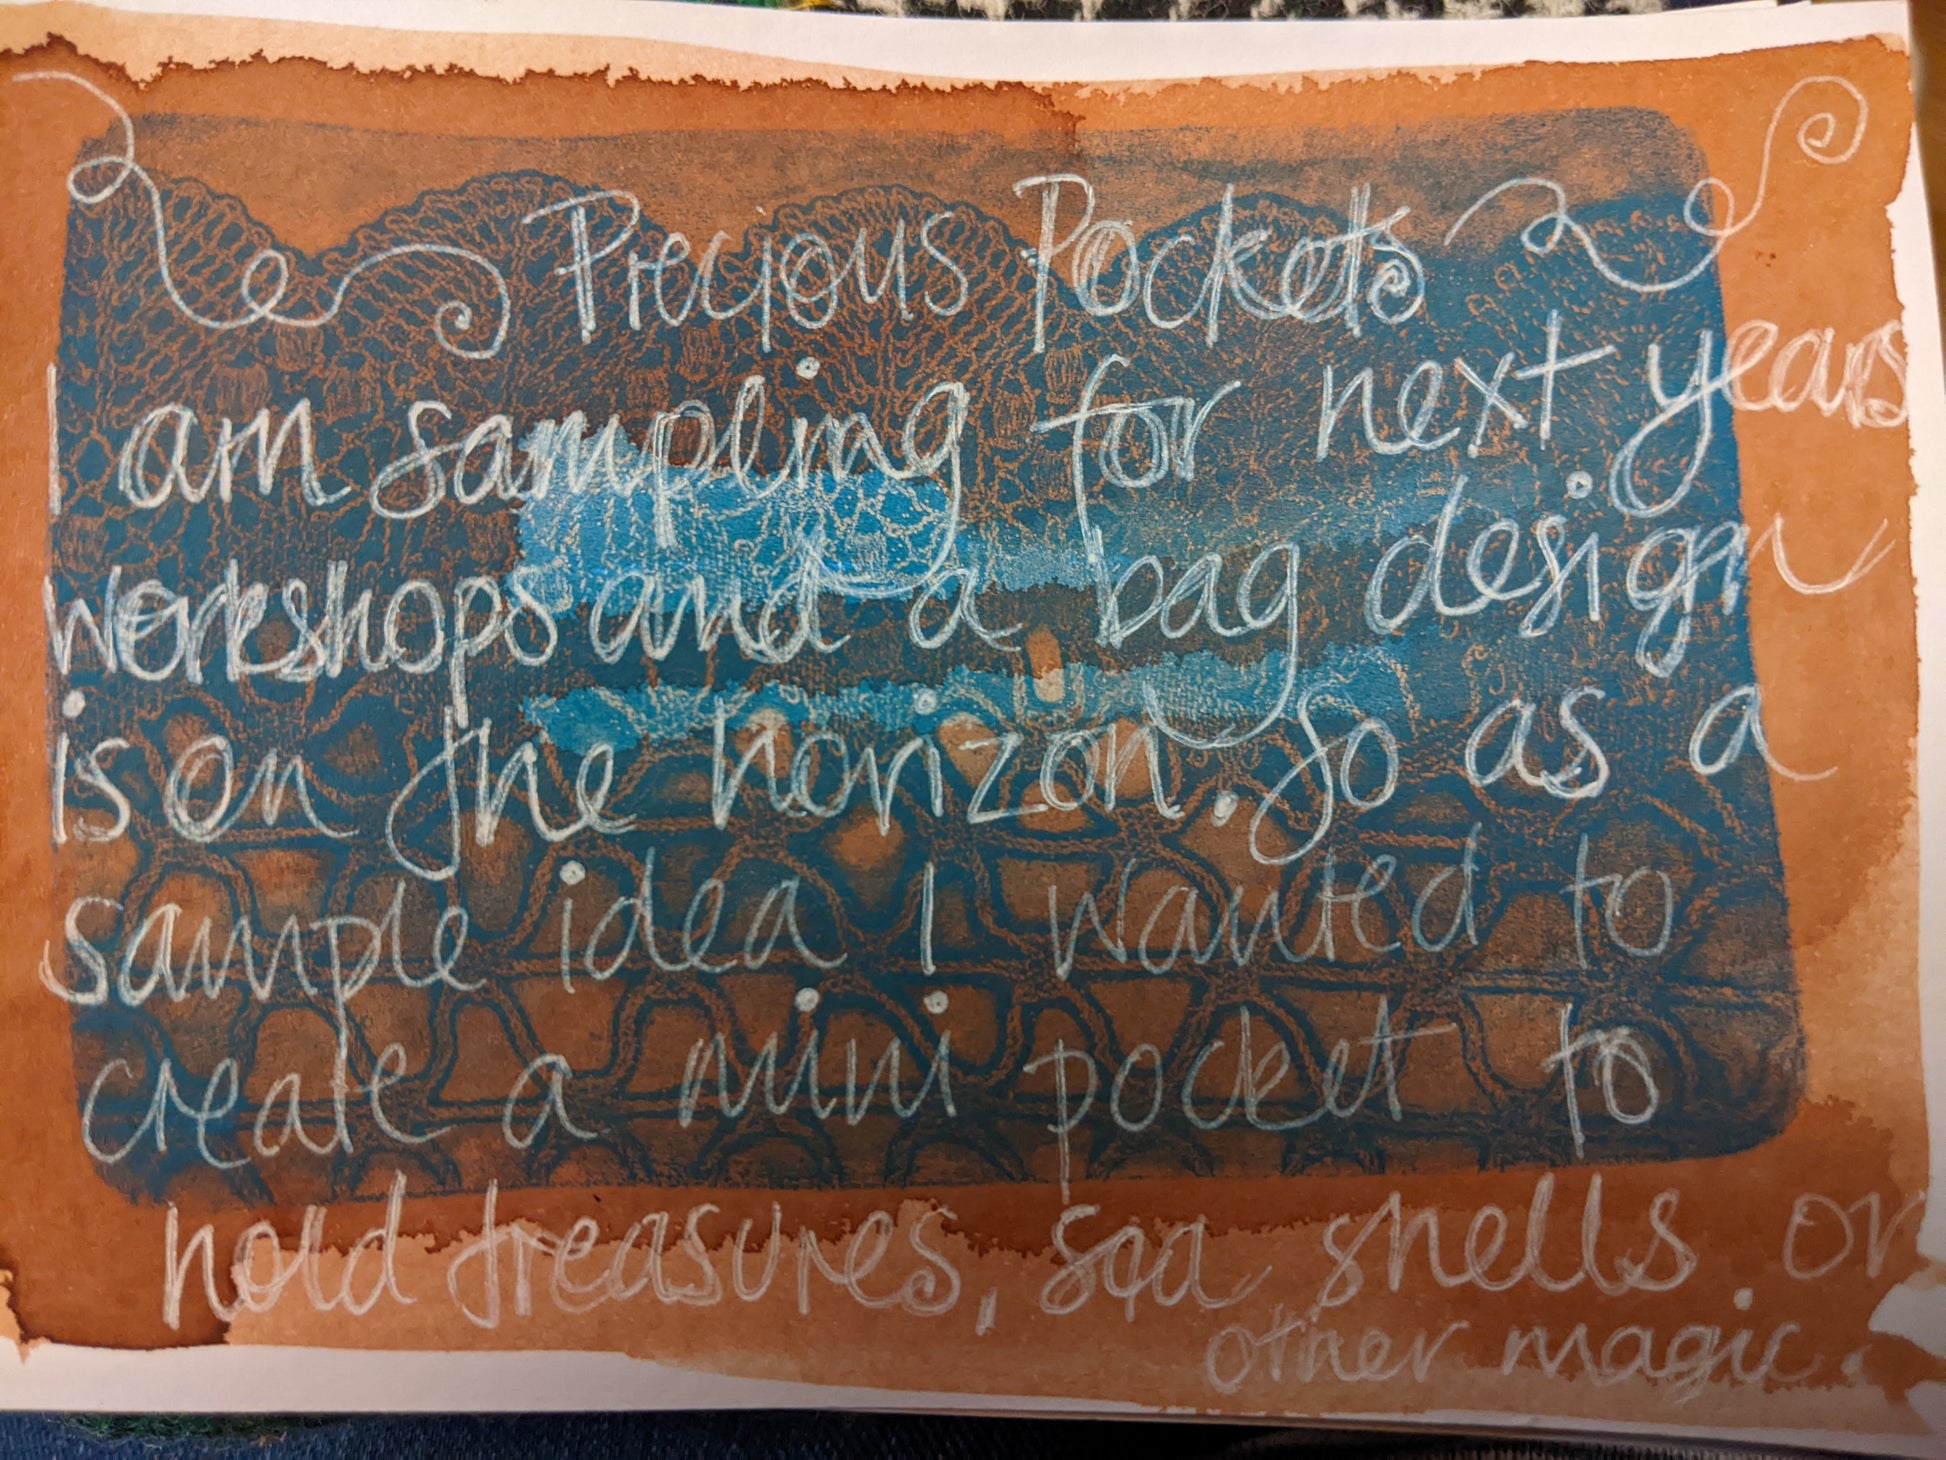 Precious Pockets
I am sampling for next years
workshops and a bag design
is on the horizon. So as a
sample idea I wanted to
create a mini pocket to
hold treasures, sea shells or
other magic.